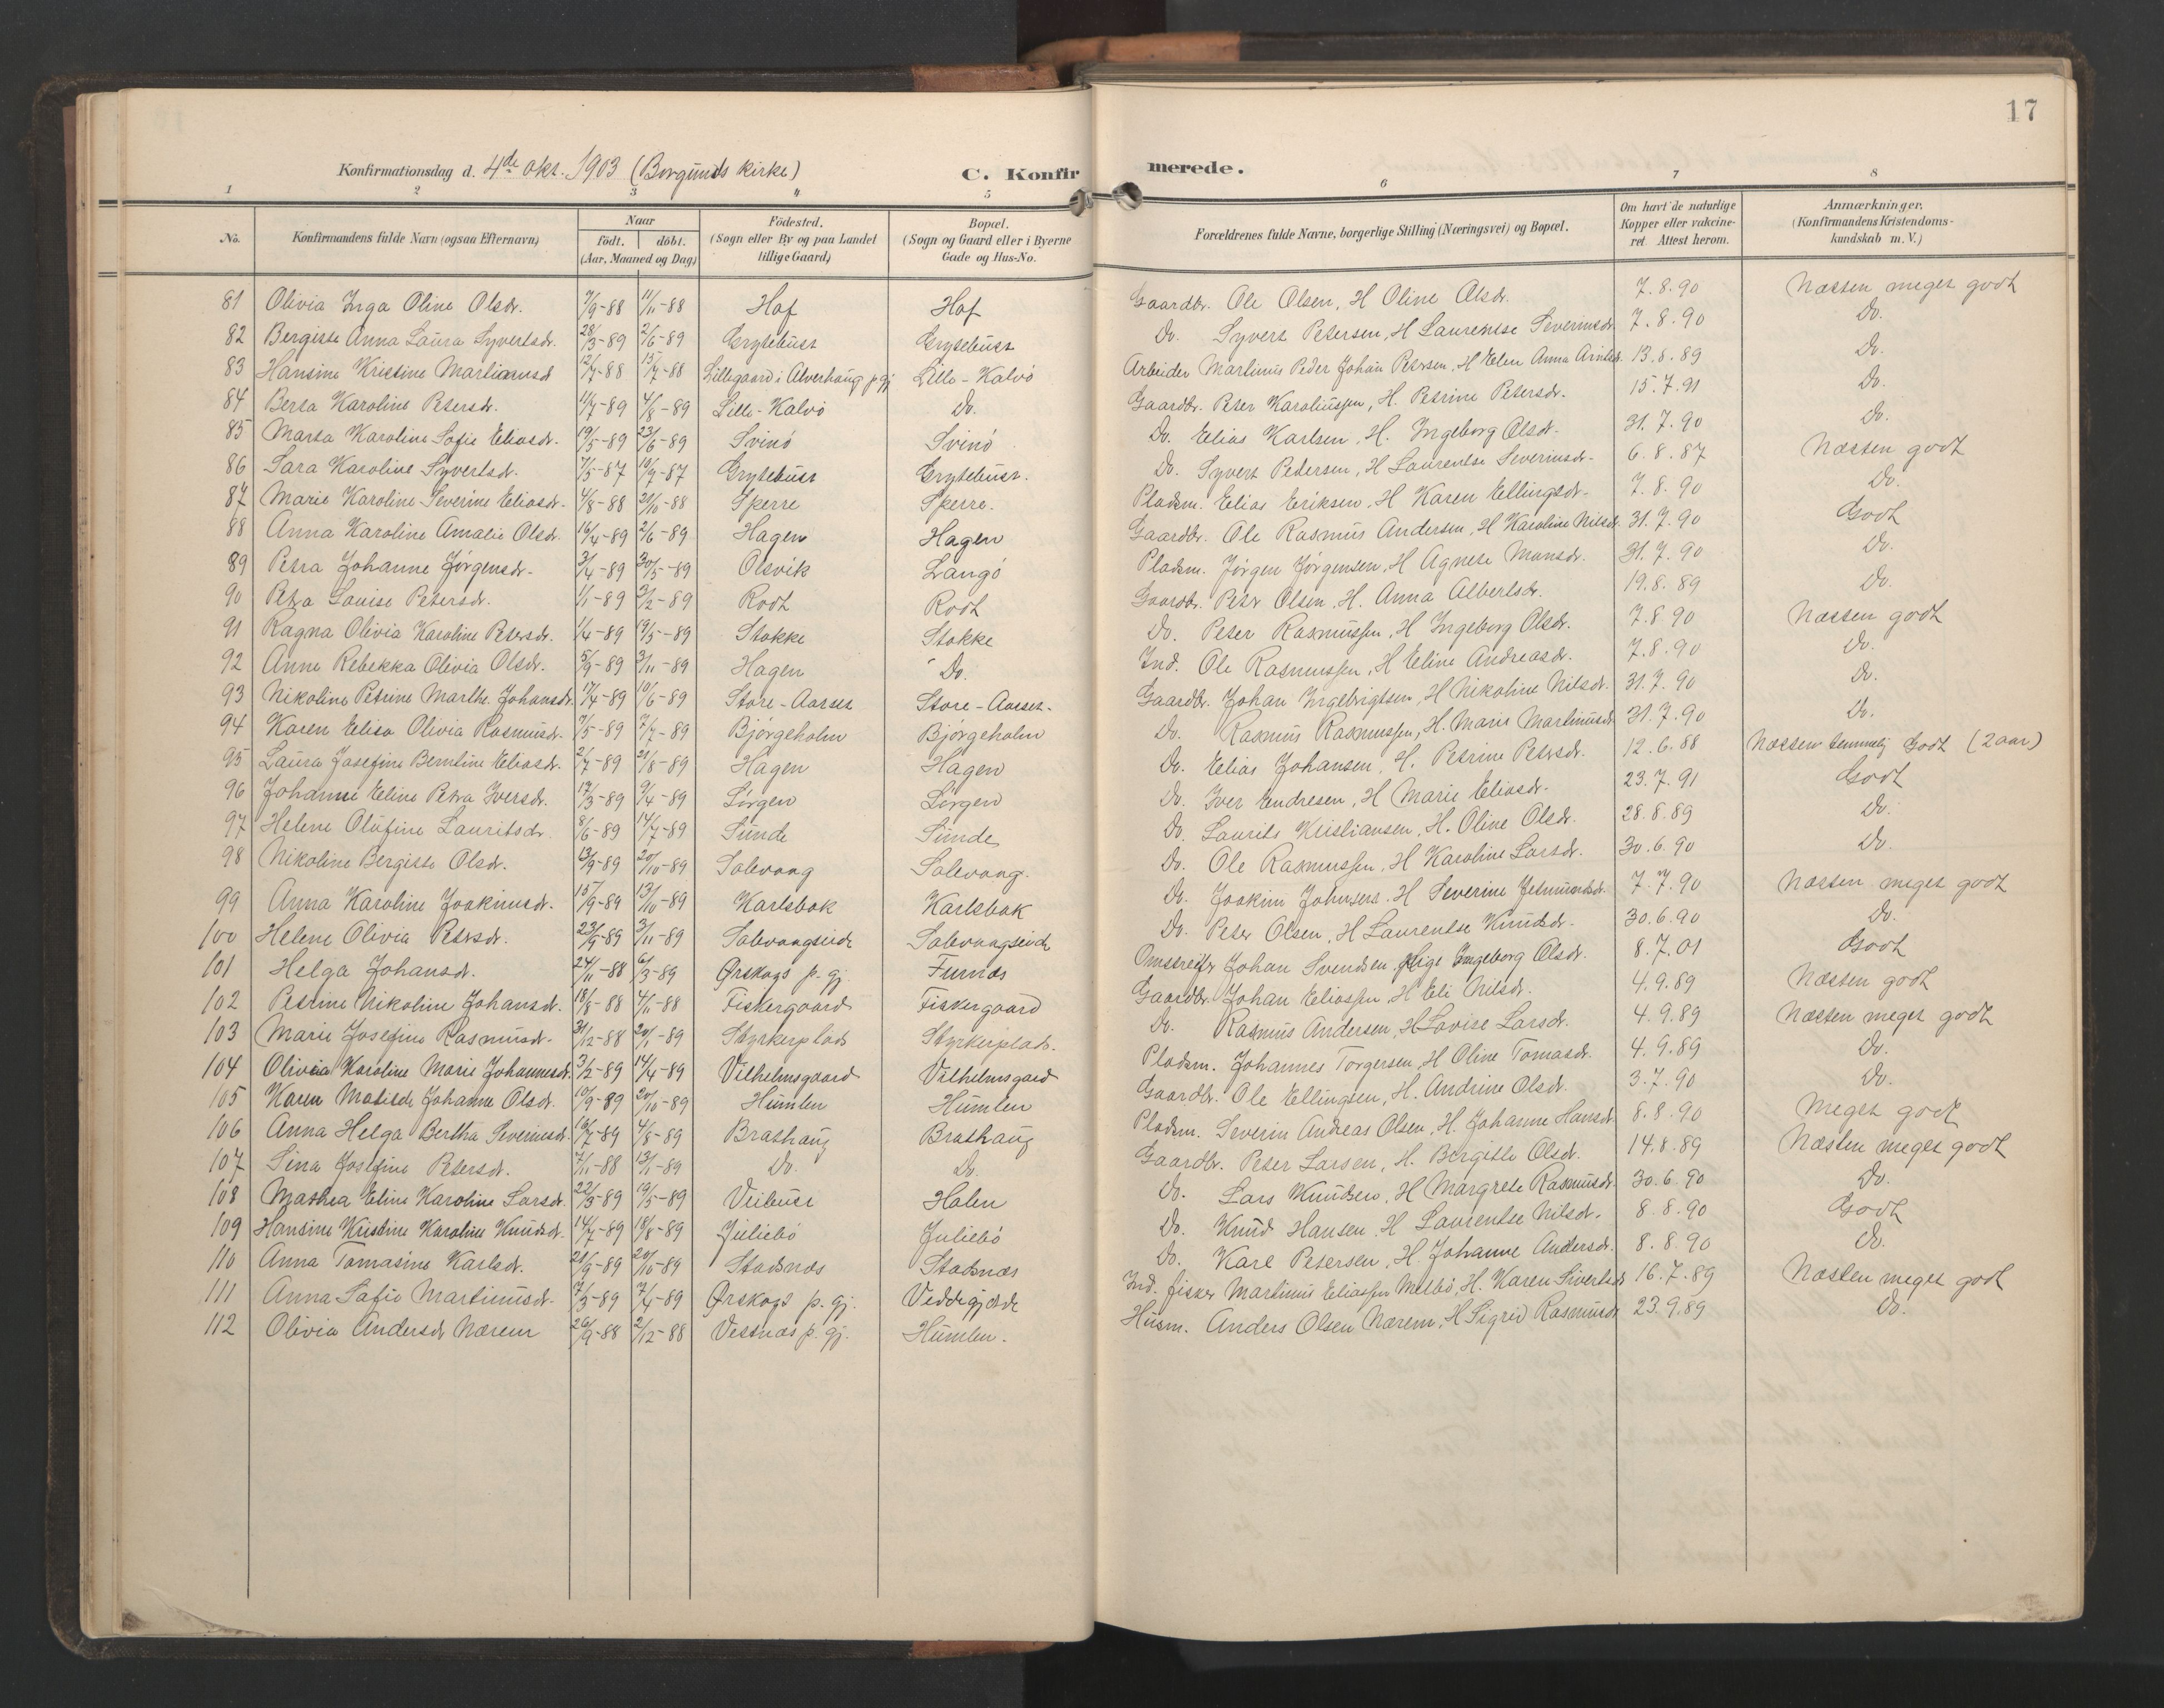 17
Konfirmationsdag d. 4de okt. 1903 (Borgunds kirke) C. Konfirmerede.
1 2 3 4 5 6 7 8
No. | Konfirmandens fulde Navn (ogsaa Efternavn) | Naar födt. | döbt. (Aar, Maaned og Dag) | Födested. (Sogn eller By og paa Landet tillige Gaard) | Bopæl. (Sogn og Gaard eller i Byerne Gade og Hus-No. | Forældrenes fulde Navne, borgerlige Stilling (Næringsvei) og Bopæl. | Om havt de naturlige Kopper eller vakcineret. Attest herom. | Anmærkninger. (Konfirmandens Kristendomskundskab m. V.)
81 Olivia Inga Oline Olsdr. 7/9-88 11/11-88 Hof Hof Gaardbr. Ole Olsen, H Oline Olsdr. 7.8.90 Næsten meget godt
82 Bergitte Anna Laura Syvertsdr. 28/3-89 2/6-89 Grytebust Grytebust Do. Syvert Petersen, H Laurentse Severinsdr. 7.8.90 Do.
83 Hansine Kristine Martianusd 12/7-88 15/7-88 Lillegaard i Alverhaug p.gj Lille-Kalvö Arbeider Martinus Peder Johan Petersen, H Elen Anna 13.8.89 Do.
84 Berta Karoline Petersdr. 11/7-89 4/8-89 Lille-Kalvö Do. Gaardbr. Peter Karoliussen, H. Petrine Petersdr. 15.7.91 Do.
85 Marta Karoline Sofie Eliasdr. 19/5-89 23/6-89 Svinö Svinö Do. Elias Karlsen, H. Ingeborg Olsdr. 31.7.90 Do.
86 Sara Karoline Syvertsd. 7/5-87 10/7-87 Grytebust Grytebust. Do. Syvert Pedersen, H Laurentse Severinsdr. 6.8.87 Næsten godt
87 Marie Karoline Severine Eliasdr. 4/8-88 21/10-88 Sperre Sperre. Pladsm. Elias Eriksen, H Karen Ellingsdr. 7.8.90 Do.
88 Anna Karoline Amalie Olsdr. 16/4-89 2/6-89 Hagen Hagen Gaardbr. Ole Rasmus Andersen, H Karoline Nilsdr. 31.7.90 Godt
89 Petra Johanne Jörgensdr. 3/4-89 30/5-89 Olsvik Langö Pladsm. Jörgen Jörgensen, H Agnete Monsdr. 31.7.90 Do.
90 Petra Louise Petersdr. 1/1-89 3/2-89 Rodt Rodt Gaardbr. Peter Olsen, H. Anna Albertsdr. 19.8.89 Do.
91 Ragna Olivia Karoline Petersdr. 1/4-89 19/5-89 Stokke Stokke Do. Peter Rasmussen, H Ingeborg Olsdr. 7.8 90 Næsten godt
92 Anne Rebekka Olivia Olsdr. 5/9-89 3/11-89 Hagen Do. Ind. Ole Rasmussen, H Eline Andreasdr. 7.8.90 Do.
93 Nikoline Petrine Marthe Johansdr. 17/4-89 10/6-89 Store-Aarset Store-Aarset. Gaardbr. Johan Ingebrigtsen, H Nikoline Nilsdr. 31.7.90 Do.
94 Karen Elisa Olivia Rasmusdr. 7/5-89 7/7-89 Björgeholm Björgeholm Do. Rasmus Rasmussen, H. Marie Martinusdr. 31.7.90 Do.
95 Laura Josefine Berntine Eliasdr. 2/7-89 21/8-89 Hagen Hagen Do. Elias Johansen, H. Petrine Petersdr. 12.6.88 Næsten temmelig Godt (2 aar)
96 Johanne Eline Petra Iversdr. 17/3-89 9/4-89 Lörgen Lörgen Do. Iver Endresen, H Marie Eliasdr. 23.7.91 Godt
97 Helene Olufine Lauritsdr. 8/6-89 14/7-89 Sunde Sunde Do. Laurits Kristiansen, H. Oline Olsdr. 28.8.89 Do.
98 Nikoline Bergitte Olsdr. 13/9-89 20/10-89 Solevaag Solevaag. Do. Ole Rasmussen, H Karoline Larsdr. 30.6.90 Do.
99 Anna Karoline Joakimsdr. 15/9-89 13/10-89 Karlsbak Karlsbak Do. Joakim Johnsen, H Severine Jetmundsdr. 7.7.90 Næsten meget godt
100 Helene Olivia Petersdr. 22/9-89 3/11-89 Solevaagseide Solevaagseide Do. Peter Olsen, H Laurentse Knudsdr. 30.6.90 Do.
101 Helga Johansdr. 24/11-88 6/3-89 Ørskogs p.gj. Furnæs Omstreifer Johan Svendsen, Pige Ingeborg Olsdr. 8.7.01 Godt
102 Petrine Nikoline Johansd. 18/8-88 4/11-88 Fiskergaard Fiskergaard Gaardbr. Johan Eliassen, H Eli Nilsdr. 4.9.89 Næsten godt
103 Marie Josefine Rasmusdr. 31/12-88 20/1-89 Styrkerplads Styrkerplads. Do. Rasmus Andersen, H Lovise Larsdr. 4.9.89 Næsten meget godt
104 Olivia Karoline Marie Johannesdr. 3/2-89 14/4-89 Vilhelmsgaard Vilhelmsgard Pladsm. Johannes Torgersen, H Oline Tomasdr. 4.9.89 Do.
105 Karen Matilde Johanne Olsdr. 10/9-89 20/10-89 Humlen Humlen Gaardbr. Ole Ellingsen, H. Andrine Olsdr. 3.7.90 Do.
106 Anna Helga Bertha Severinsdr. 16/7-89 4/8-89 Brathaug Brathaug Pladsm. Severin Andreas Olsen, H. Johanne Hansdr. 8.8.90 Meget godt
107 Sina Josefine Petersdr. 7/11-88 13/1-89 Do. Do. Gaardbr. Peter Larsen, H. Bergitte Olsdr. 14.8.89 Næsten meget godt
108 Mathea Eline Karoline Larsdr. 22/3-89 19/5-89 Veibust Holen Do. Lars Knudsen, H Margrete Rasmusdr. 30.6.90 Do.
109 Hansine Kristine Karoline Knudsdr. 14/7-89 18/8-89 Juliebö Juliebö Do. Knud Hansen, H Laurentse Nilsdr. 8.8.90 Godt
110 Anna Tomasine Karlsd. 21/9-89 20/10-89 Stadsnæs Stadsnæs Do. Karl Petersen, H. Johanne Andersdr. 8.8.90 Do.
111 Anna Sofie Martinusdr. 7/3-89 7/4-89 Ørskogs p.gj. Veddegjærde Ind. fisker Martinus Eliassen Melbö, H. Karen Sivertsdr. 16.7.89 Næsten meget godt
112 Olivia Andersdr Nærem 26/9-88 2/12-88 Vestnæs p.gj. Humlen. Husm. Anders Olsen Nærem, H Sigrid Rasmusdr 23.9.89 Do.